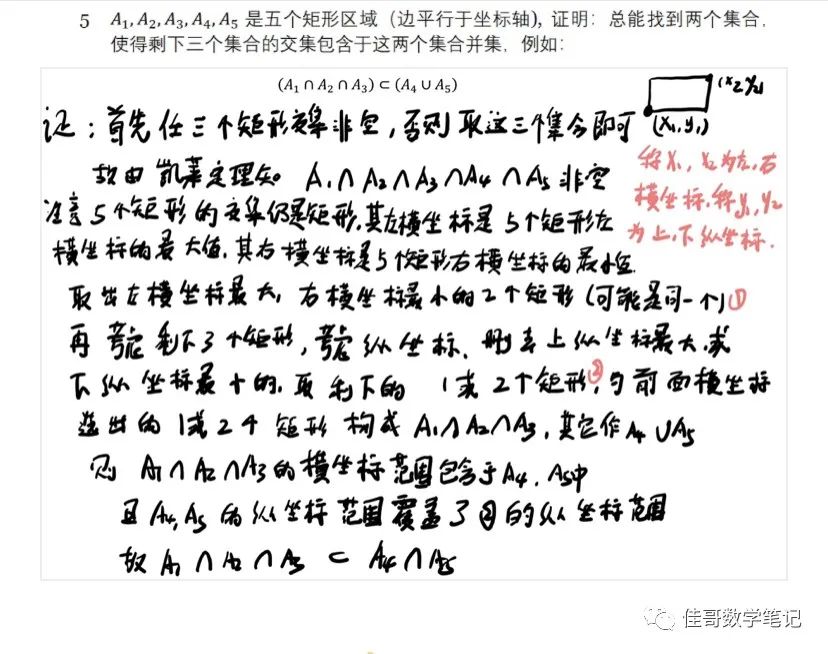 5 A₁, A₂, A₃, A₄, A₅ 是五个矩形区域（边平行于坐标轴), 证明：总能找到两个集合,
使得剩下三个集合的交集包含于这两个集合并集, 例如：
(A₁ ∩ A₂ ∩ A₃) ⊂ (A₄ ∪ A₅)
(x₂ y₂)
证：首先任三个矩形交集非空, 否则取这三个集合即可
(x₁, y₁)
故由凯莱定理知 A₁∩A₂∩A₃∩A₄∩A₅ 非空
称x₁, x₂为左, 右
横坐标, 称y₁, y₂
为上, 下纵坐标.
注意5个矩形的交集仍是矩形, 其左横坐标是5个矩形左
横坐标的最大值, 其右横坐标是5个矩形右横坐标的最小值
取出左横坐标最大, 右横坐标最小的2个矩形 (可能是同一个) ①
再考虑剩下3个矩形, 考虑纵坐标, 删去上纵坐标最大, 或
下纵坐标最小的, 取剩下的 1或2个矩形②, 与前面横坐标
选出的1或2个矩形构成 A₁∩A₂∩A₃, 其它作A₄∪A₅
则 A₁∩A₂∩A₃的横坐标范围包含于A₄, A₅中
且A₄,A₅的纵坐标范围覆盖了②的纵坐标范围
故 A₁∩A₂∩A₃ ⊂ A₄∩A₅
佳哥数学笔记